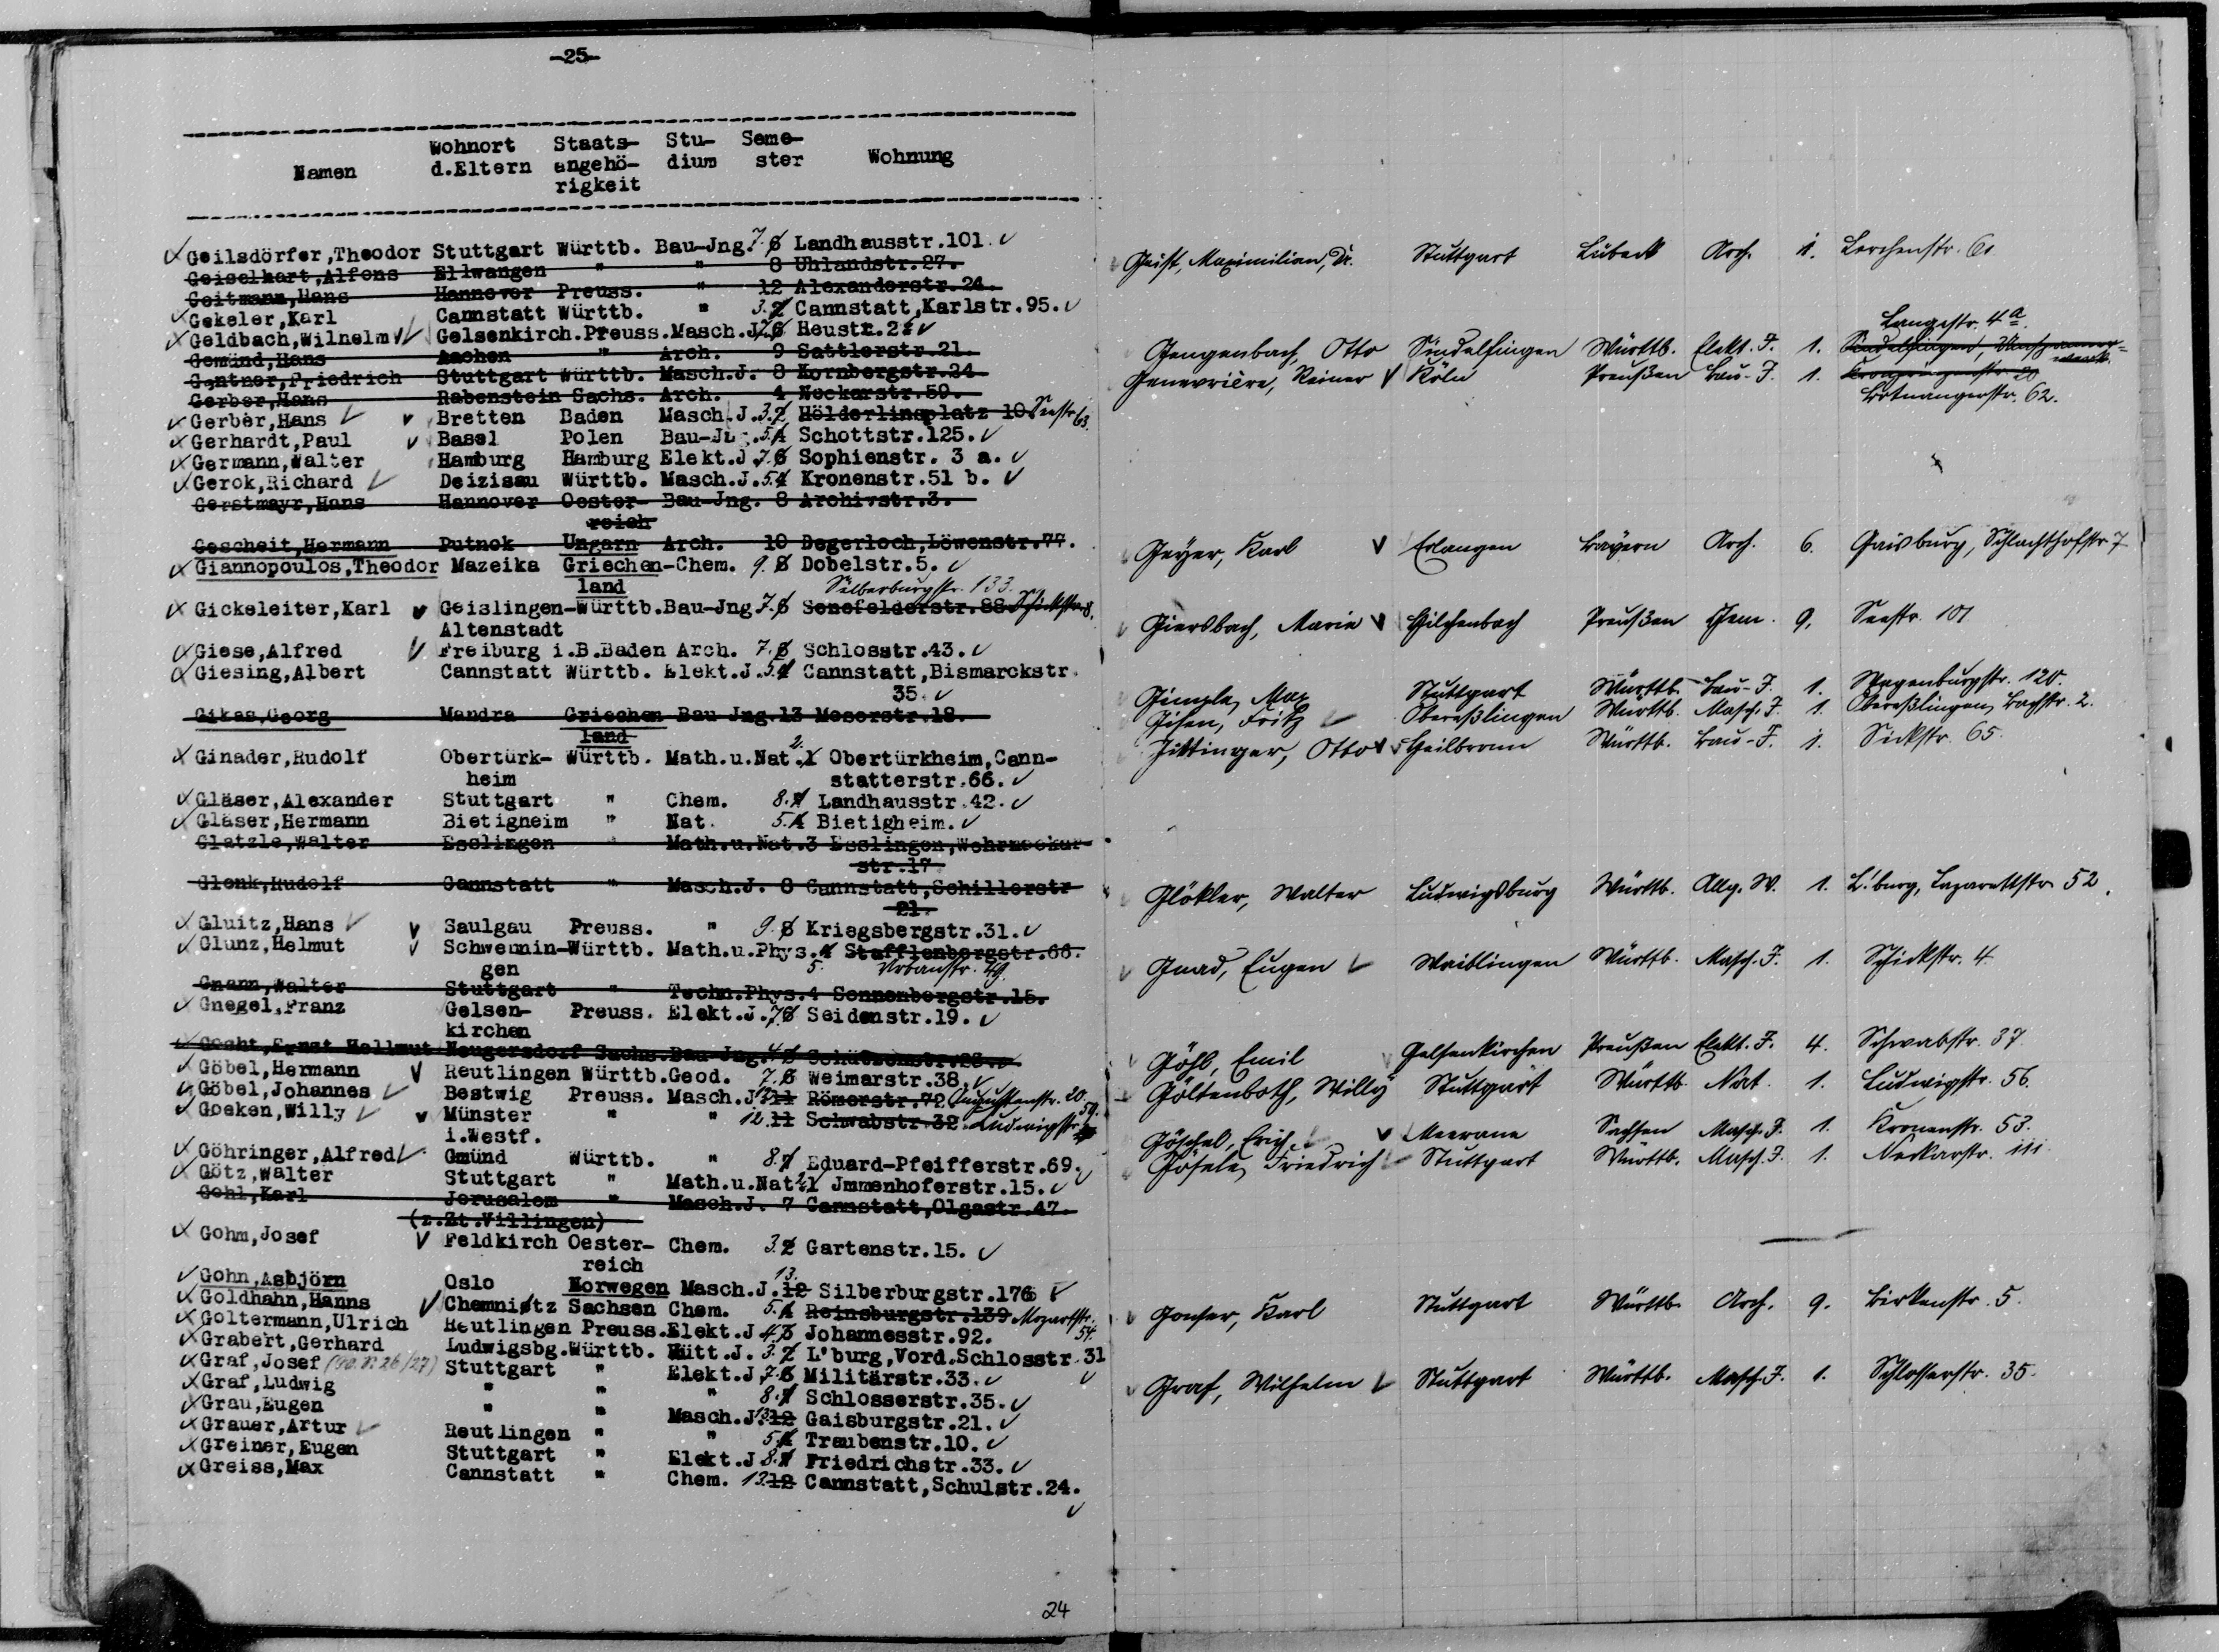 -25-
Namen Wohnort d.Eltern Staats-angehö-rigkeit Stu-dium Seme-ster Wohnung
Geilsdörfer,Theodor Stuttgart Württb. Bau-Jng. 7. 6 Landhausstr.101.
Geiselhart,Alfons Ellwangen " " 8 Uhlandstr.27.
Geitmann,Hans Hannover Preuss. " 12 Alexanderstr.24.
Gekeler,Karl Cannstatt Württb. " 3. 2 Cannstatt,Karlstr.95.
Geldbach,Wilhelm Gelsenkirch.Preuss.Masch.J. 7. 6 Heustr.2
Gemünd,Hans Aachen " Arch. 9 Sattlerstr.21.
Gentner,Friedrich Stuttgart Württb. Masch.J. 8 Kornbergstr.24
Gerber,Hans Rabenstein Sachs. Arch. 4 Neckarstr.59.
Gerber,Hans Bretten Baden Masch.J. 3. 2 Hölderlinsplatz 10 Seestr. 63.
Gerhardt,Paul Basel Polen Bau-J 5. 4 Schottstr.125.
Germann,Walter Hamburg Hamburg Elekt.J 7. 6 Sophienstr. 3 a.
Gerok,Richard Deizisau Württb. Masch.J. 5. 4 Kronenstr.51 b.
Gerstmayr,Hans Hannover Oester- Bau-Jng. 8 Archivstr.3.
reich
Gescheit,Hermann Putnok Ungarn Arch. 10 Degerloch,Löwenstr.77.
Giannopoulos,Theodor Mazeika Griechen-Chem. 9. 8 Dobelstr.5.
land Silberburgstr. 133.
Gickeleiter,Karl Geislingen-Württb.Bau-Jng. 7. 6 Senefelderstr.88 Schickstr. 8.
Altenstadt
Giese,Alfred Freiburg i.B.Baden Arch. 7. 6 Schlosstr.43.
Giesing,Albert Cannstatt Württb. Elekt.J. 5. 4 Cannstatt,Bismarckstr.
35.
Gikas,Georg Mandra Griechen Bau Jng.13 Moserstr.18.
land
Ginader,Rudolf Obertürk- Württb. Math.u.Nat. 2. 1 Obertürkheim,Cann-
heim statterstr.66.
Gläser,Alexander Stuttgart " Chem. 8. 7 Landhausstr.42.
Gläser,Hermann Bietigheim " Nat. 5. 4 Bietigheim.
Glatzle,Walter Esslingen " Math.u.Nat.3 Esslingen,Wehrneckar-
str.17
Glenk,Rudolf Cannstatt " Masch.J. 8 Cannstatt,Schillerstr
21.
Gluitz,Hans Saulgau Preuss. " 9. 8 Kriegsbergstr.31.
Glunz,Helmut Schwennin-Württb. Math.u.Phys. 4 Stafflenbergstr.66.
gen 5. Urbanstr. 49.
Gnann,Walter Stuttgart " Techn.Phys.4 Sonnenbergstr.15.
Gnegel,Franz Gelsen- Preuss. Elekt.J. 7. 6 Seidenstr.19.
kirchen
Gocht,Ernst Hellmut Neugersdorf Sachs.Bau-Jng. 4. 3 Schützenstr.28.
Göbel,Hermann Reutlingen Württb.Geod. 7. 6 Weimarstr.38.
Göbel,Johannes Bestwig Preuss. Masch.J. 12. 11 Römerstr.72 Augustenstr. 20.
Goeken,Willy Münster " " 12. 11 Schwabstr.32. Ludwigstr. 59.
i.Westf.
Göhringer,Alfred Gmünd Württb. " 8. 7 Eduard-Pfeifferstr.69.
Götz,Walter Stuttgart " Math.u.Nat. 2. 1 Jmmenhoferstr.15.
Gohl,Karl Jerusalem " Masch.J. 7 Cannstatt,Olgastr.47.
(z.Zt.Villingen)
Gohm,Josef Feldkirch Oester- Chem. 3. 2 Gartenstr.15.
reich
Gohn,Asbjörn Oslo Norwegen Masch.J. 13. 12 Silberburgstr.176
Goldhahn,Hanns Chemnitz Sachsen Chem. 5. 4 Reinsburgstr.139 Mozartstr. 54.
Goltermann,Ulrich Reutlingen Preuss.Elekt.J 4. 3 Johannesstr.92.
Grabert,Gerhard Ludwigsbg.Württb. Hütt.J. 3. 2 L'burg,Vord.Schlosstr.31
Graf,Josef Stuttgart " Elekt.J. 7. 6 Militärstr.33.
Graf,Ludwig " " " 8. 7 Schlosserstr.35.
Grau,Eugen " " Masch.J. 13. 12 Gaisburgstr.21.
Grauer,Artur Reutlingen " " 5. 4 Traubenstr.10.
Greiner,Eugen Stuttgart " Elekt.J 8. 7 Friedrichstr.33.
Greiss,Max Cannstatt " Chem. 13. 12 Cannstatt,Schulstr.24.
24
Geist, Maximilian, Dr. Stuttgart Lübeck Arch. 1. Lerchenstr. 61
Langestr. 4a.
Gengenbach, Otto Sindelfingen Württb. Elekt. J. 1. Sindelfingen, Umspannwerk
Genevrière, Reiner Köln Preußen Bau-J. 1. Kronprinzenstr. 20
Botnangerstr. 62.
Geyer, Karl Erlangen Bayern Arch. 6. Gaisburg, Schlachthofstr. 7
Giersbach, Marie Hilchenbach Preußen Chem. 9. Seestr. 101
Gimple, Max Stuttgart Württb. Bau-J. 1. Wagenburgstr. 120.
Gisen, Fritz Oberesslingen Württb. Masch. J. 1. Obereßlingen, Bachstr. 2.
Gittinger, Otto Heilbronn Württb. Bau-J. 1. Sickstr. 65.
Glökler, Walter Ludwigsburg Württb. Allg. W. 1. L'burg, Lazarettstr. 52.
Gnad, Eugen Waiblingen Württb. Masch. J. 1. Schickstr. 4
Göhl, Emil Gelsenkirchen Preußen Elekt. J. 4. Schwabstr. 37.
Göltenboth, Willy Stuttgart Württb. Nat. 1. Ludwigstr. 56.
Göschel, Erich Meerane Sachsen Masch. J. 1. Kronenstr. 53.
Gösele, Friedrich Stuttgart Württb. Masch. J. 1. Neckarstr. 111.
Gonser, Karl Stuttgart Württb. Arch. 9. Birkenstr. 5.
Graf, Wilhelm Stuttgart Württb. Masch. J. 1. Schlosserstr. 35.